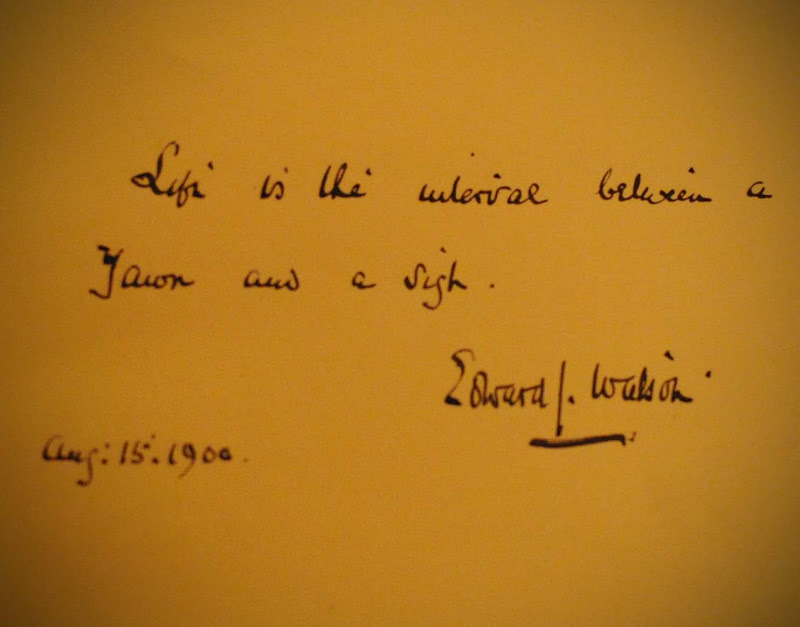 Life is the interval between a
Yawn and a sigh.
Edward J. Watson.
Aug: 15. 1900.